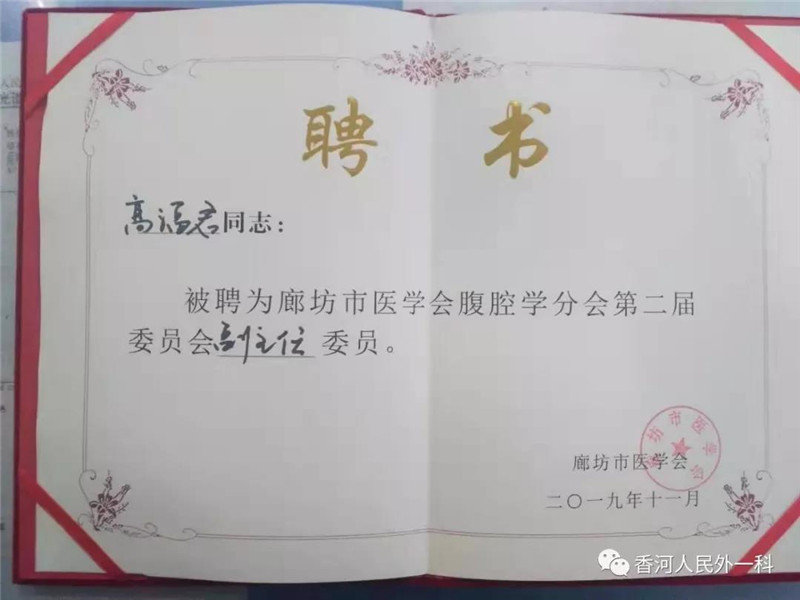 聘 书
高福君同志：
被聘为廊坊市医学会腹腔学分会第二届
委员会副主任 委员。
廊坊市医学会
二〇一九年十一月
廊坊市医学会
香河人民外一科